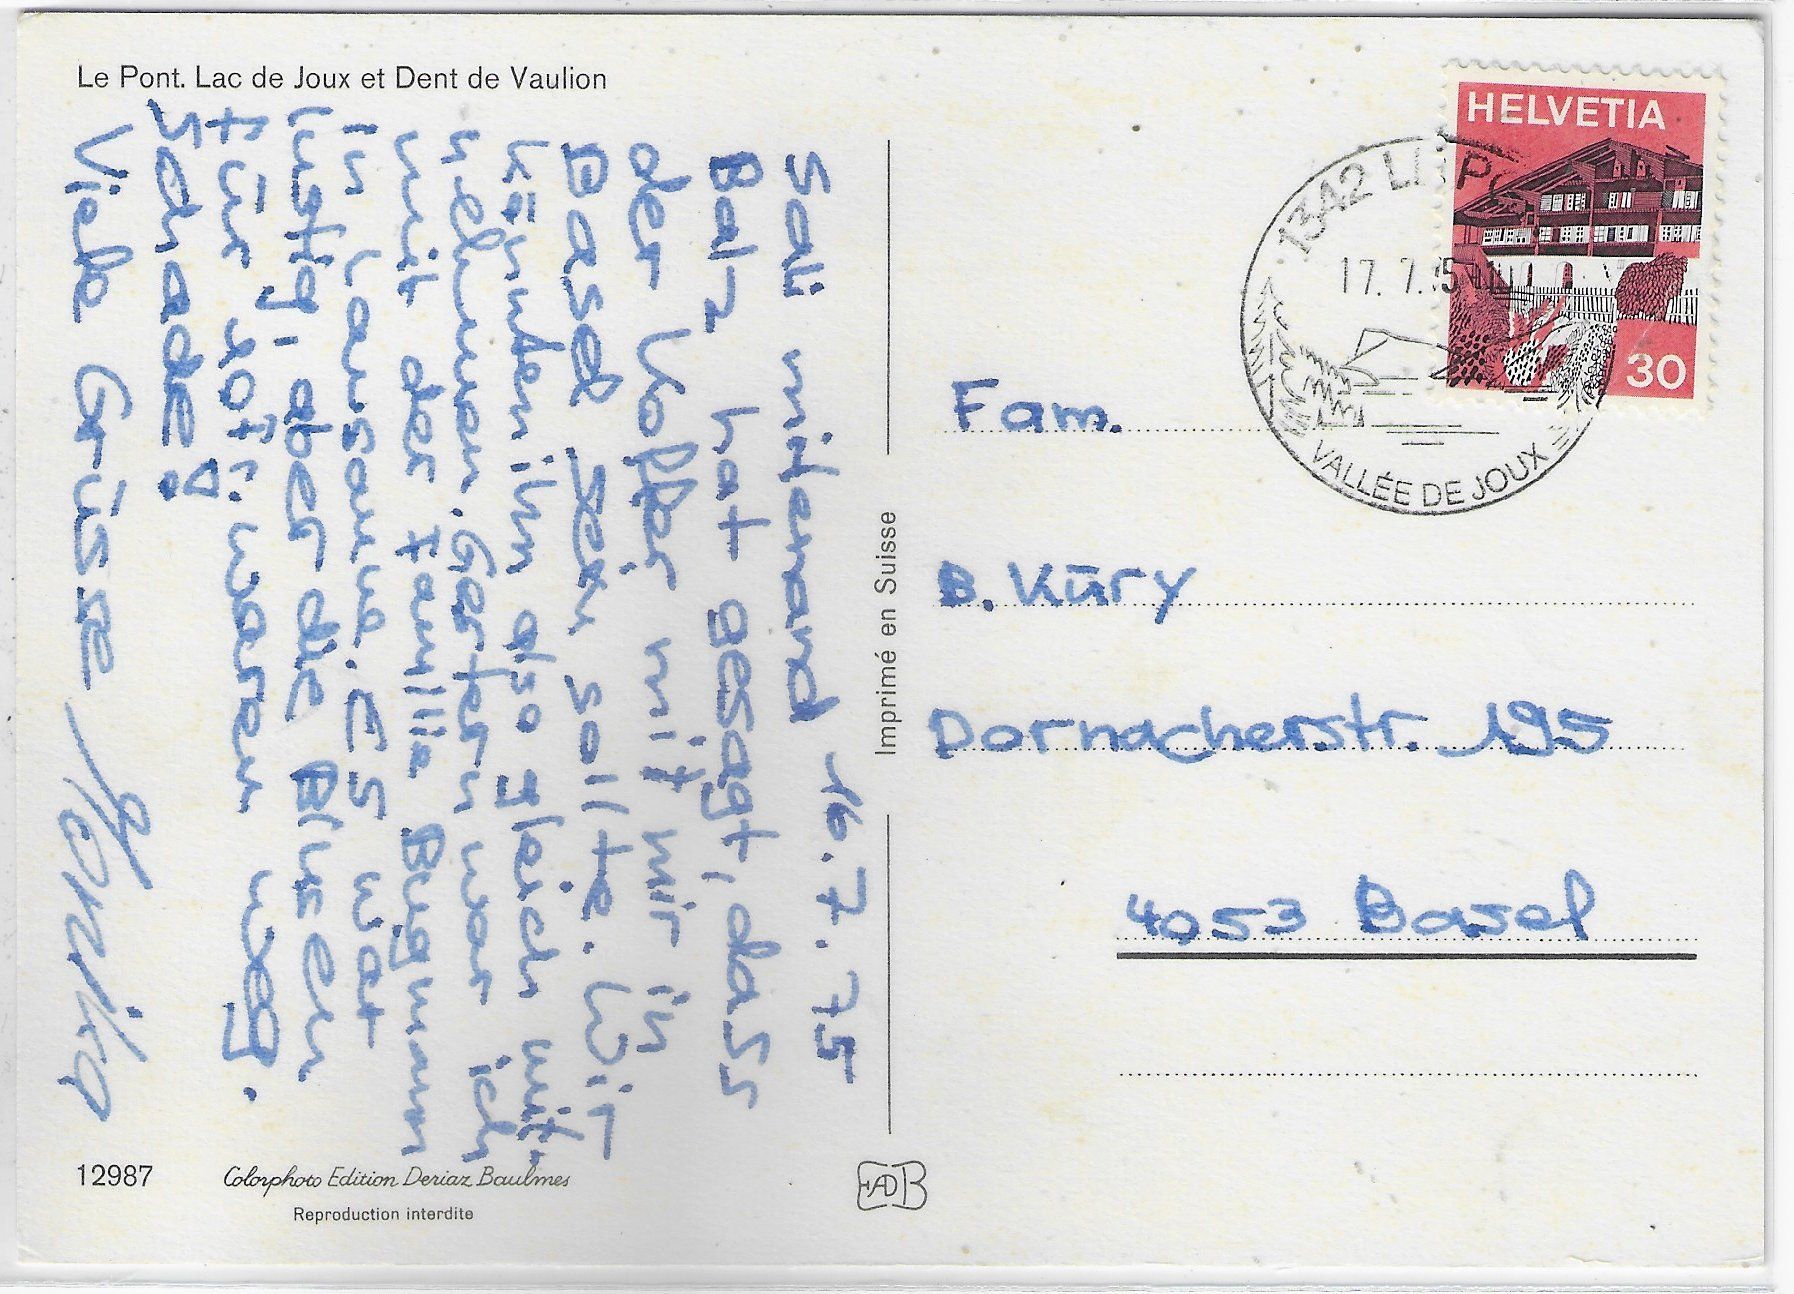 Le Pont. Lac de Joux et Dent de Vaulion
Sali mitenand 16.7.75
Balz hat gesagt, dass
der Koffer mit mir in
Basel sein sollte. Wir
können ihn also gleich mit-
nehmen. Gestern war ich
mit der Familie Bugmann
in Lausanne. Es war
lustig, aber die Blusen
für 20fr. waren weg.
Schade!
Viele Grüsse Monika
12987
Colorphoto Edition Deriaz Baulmes
Reproduction interdite
Imprimé en Suisse
EADB
HELVETIA
30
1342 LE PONT
17. 7. 75
VALLÉE DE JOUX
Fam.
B. Küry
Dornacherstr. 195
4053 Basel